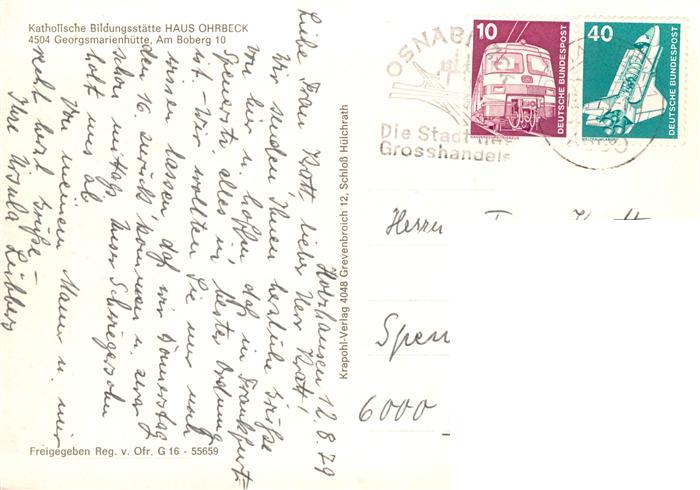 Katholische Bildungsstätte HAUS OHRBECK
4504 Georgsmarienhütte, Am Boberg 10
Holzhausen 12.8.79
Liebe Frau Kott, lieber Herr Kott!
Wir senden Ihnen herzliche Grüße
von hier u. hoffen daß in Frankfurt-
Spenerstr. alles in bester Ordnung
ist. - Wir wollten Sie nur noch
wissen lassen, daß wir Donnerstag
den 16. zurück kommen u. zwar
schon mittags. Unser Schwiegersohn
holt uns ab.
Von meinem Mann u. mir
recht herzl. Grüße -
Ihre Ursula Lübbers
Freigegeben Reg. v. Ofr. G 16 - 55659
Krapohl-Verlag 4048 Grevenbroich 12, Schloß Hülchrath
OSNAB
Die Stadt
Grosshandels
10
DEUTSCHE BUNDESPOST
40
DEUTSCHE BUNDESPOST
Herrn
Spen
6000